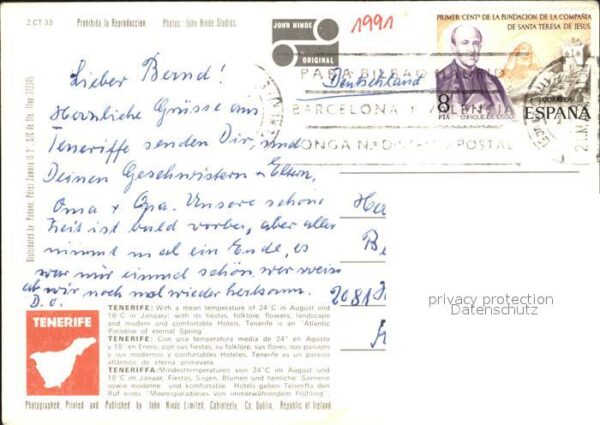 2 CT 33 Prohibida la Reproduccion. Photos: John Hinde Studios.
JOHN HINDE
ORIGINAL
1991
PRIMER CENTº DE LA FUNDACION DE LA COMPAÑIA
DE SANTA TERESA DE JESUS
8
PTA
CORREOS
ENRIQUE DE OSSO
ESPAÑA
PARA BILBAO
BARCELONA Y VALEN
ONGA N.º D POSTAL
Deutschland
Lieber Bernd!
Herzliche Grüsse aus
Teneriffe senden Dir, und
Deinen Geschwistern + Eltern,
Oma + Opa. Unsere schöne
Zeit ist bald vorbei, aber alles
nimmt mal ein Ende, es
war mir einmal schön, wer weiss
ob wir noch mal wieder herkomm.
D. O.
2081
privacy protection
Datenschutz
Distributed by
TENERIFE
TENERIFE: With a mean temperature of 24°C in August and
18°C in January; with its fiestas, folklore, flowers, landscape
and modern and comfortable Hotels, Tenerife is an "Atlantic
Paradise of eternal Spring".
TENERIFE: Con una temperatura media de 24° en Agosto
y 18° en Enero; con sus fiestas, su folklore, sus flores, sus paisajes
y sus modernos y comfortables Hoteles, Tenerife es un paraiso
atlántico de eterna primavera.
TENERIFFA: Mindesttemperaturen von 24°C im August und
18°C im Januar, Fiestas, Sagen, Blumen und herrliche Szenerie
sowie moderne und komfortable Hotels geben Teneriffa den
Ruf eines "Meeresparadieses von immerwährendem Frühling".
Photographed, Printed and Published by John Hinde Limited, Cabinteely, Co. Dublin, Republic of Ireland